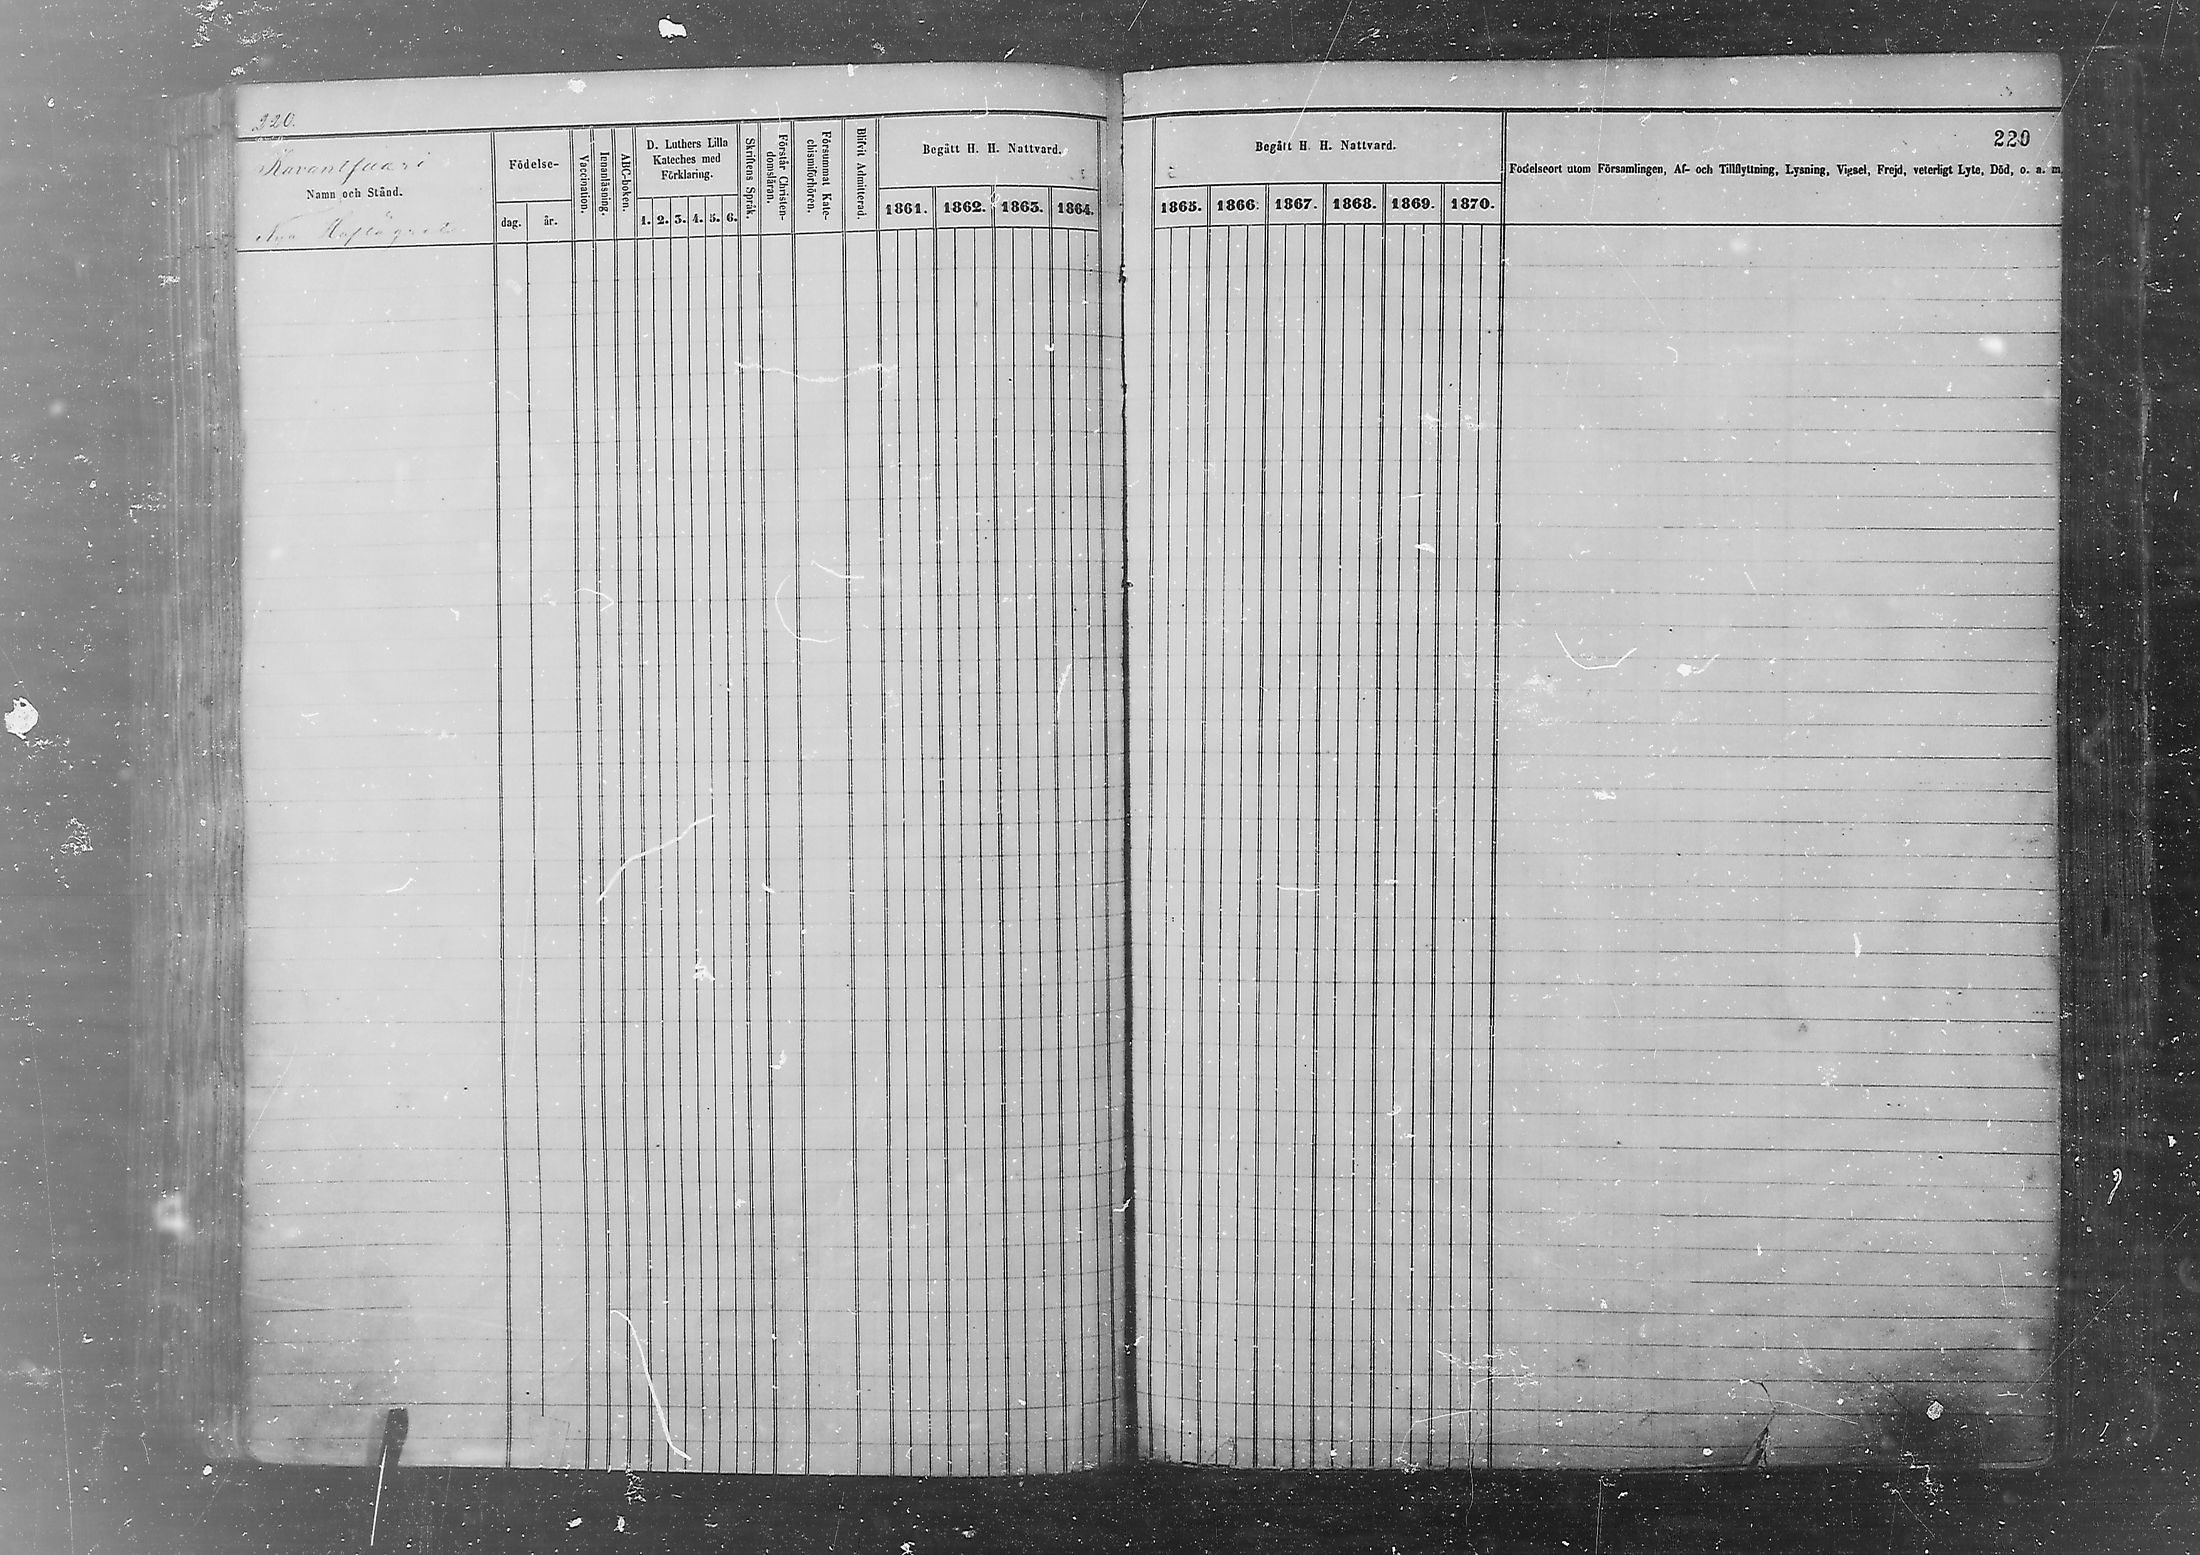 220.
Karantsaari
Namn och Stånd.
Födelse-
dag. år.
Vaccination.
Innanläsning.
ABC-boken.
D. Luthers Lilla
Kateches med
Förklaring.
1. 2. 3. 4. 5. 6.
Skriftens Språk.
Förstår Christen-
domsläran.
Försummat Kate-
chismiförhören.
Blifvit Admitterad.
Begått H. H. Nattvard.
1861. 1862. 1863. 1864.
Begått H. H. Nattvard.
1865. 1866. 1867. 1868. 1869. 1870.
220
Födelseort utom Församlingen, Af- och Tillflyttning, Lysning, Vigsel, Frejd, veterligt Lyte, Död, o. a. m